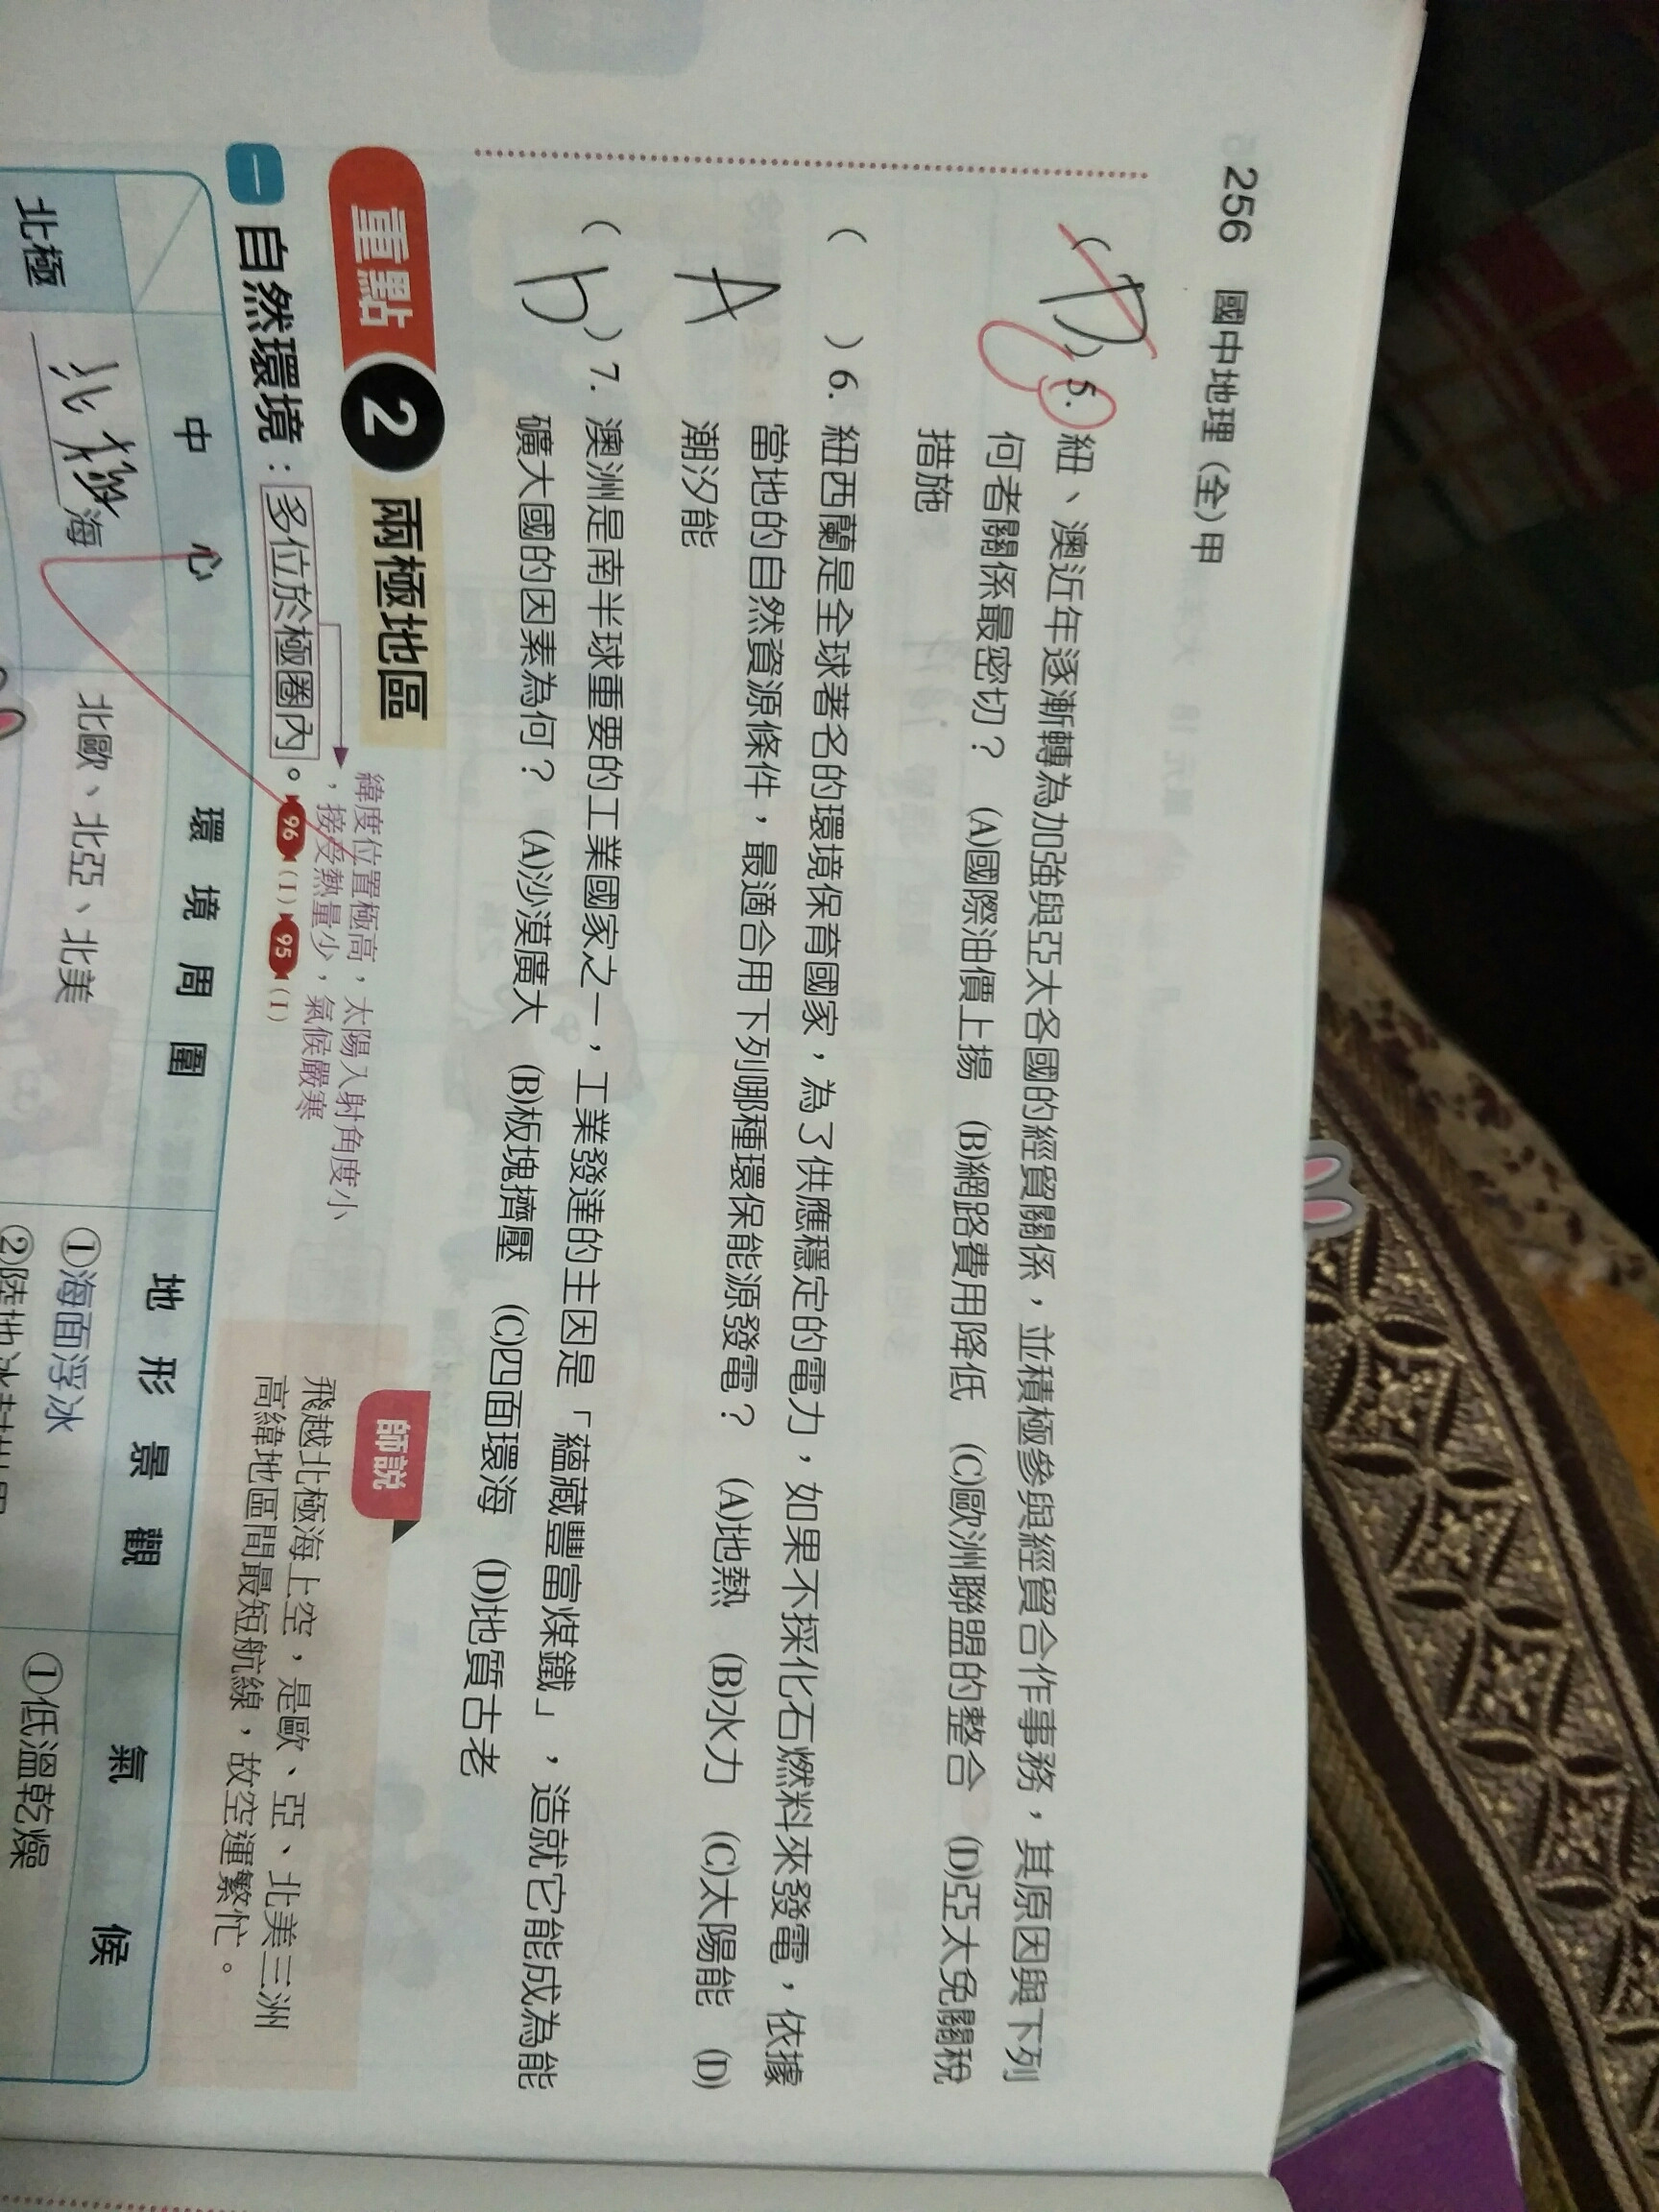 256 國中地理(全)甲
(D)5. 紐、澳近年逐漸轉為加強與亞太各國的經貿關係,並積極參與經貿合作事務,其原因與下列
何者關係最密切? (A)國際油價上揚 (B)網路費用降低 (C)歐洲聯盟的整合 (D)亞太免關稅
措施
C
( )6. 紐西蘭是全球著名的環境保育國家,為了供應穩定的電力,如果不採化石燃料來發電,依據
當地的自然資源條件,最適合用下列哪種環保能源發電? (A)地熱 (B)水力 (C)太陽能 (D)
潮汐能
A
( )7. 澳洲是南半球重要的工業國家之一,工業發達的主因是「蘊藏豐富煤鐵」,造就它能成為能
礦大國的因素為何? (A)沙漠廣大 (B)板塊擠壓 (C)四面環海 (D)地質古老
D
重點 2 兩極地區
緯度位置極高,太陽入射角度小
,接受熱量少,氣候嚴寒
一 自然環境:多位於極圈內。 96(I) 95(I)
師說
飛越北極海上空,是歐、亞、北美三洲
高緯地區間最短航線,故空運繁忙。
中心 環境周圍 地形景觀 氣候
北極 北極海 北歐、北亞、北美 ①海面浮冰 ①低溫乾燥
②陸地冰封